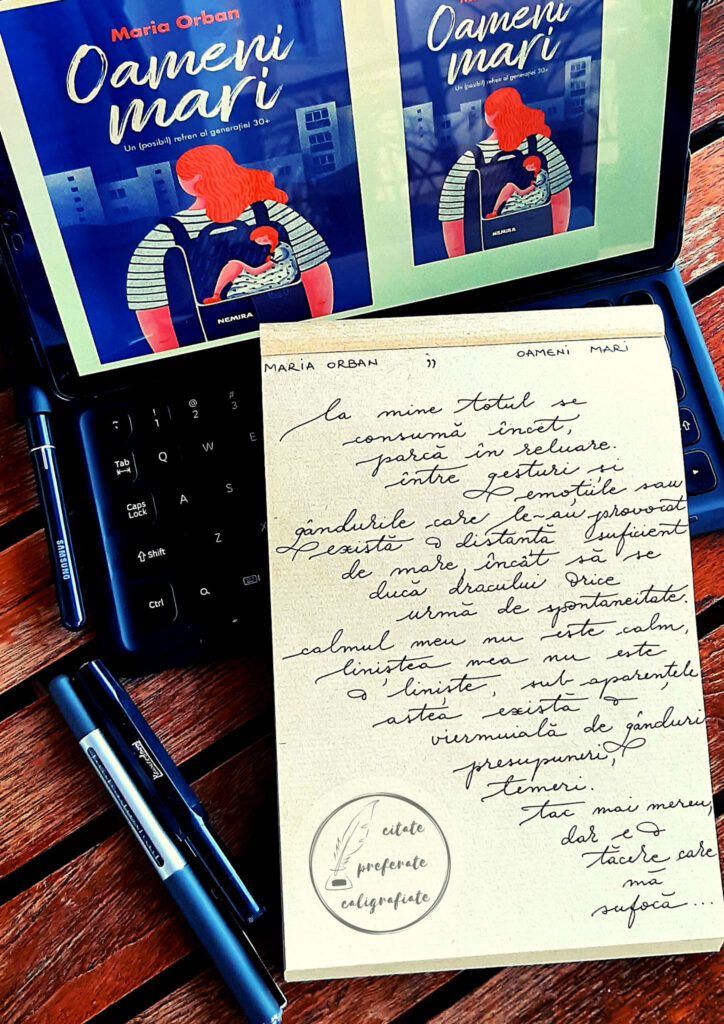 Maria Orban
Oameni
mari
Un (posibil) refren al generației 30+
NEMIRA
Oameni
mari
Un (posibil) refren al generației 30+
NEMIRA
MARIA ORBAN ,, OAMENI MARI
la mine totul se
consumă încet,
parcă în reluare.
între gesturi și
emoțiile sau
gândurile care le-au provocat
există o distanță suficient
de mare, încât să se
ducă dracului orice
urmă de spontaneitate.
calmul meu nu este calm,
liniștea mea nu este
o liniște, sub aparențele
astea există o
viermuială de gânduri
presupuneri,
temeri.
tac mai mereu,
dar e o
tăcere care
mă
sufocă...
citate
preferate
caligrafiate
! @ #
1 2 3
Tab Q W E
Caps
Lock A S
Shift Z X
Ctrl
SAMSUNG